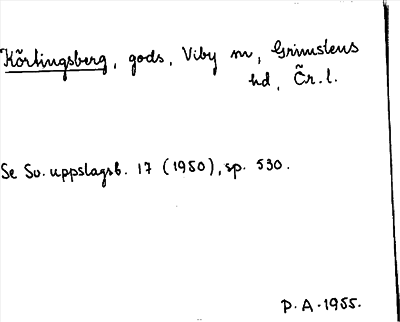 Körlingsberg, gods, Viby sn, Grimstens
hd, Ör.l.
Se Sv. uppslagsb. 17 (1950), sp. 530.
P.A. 1955.